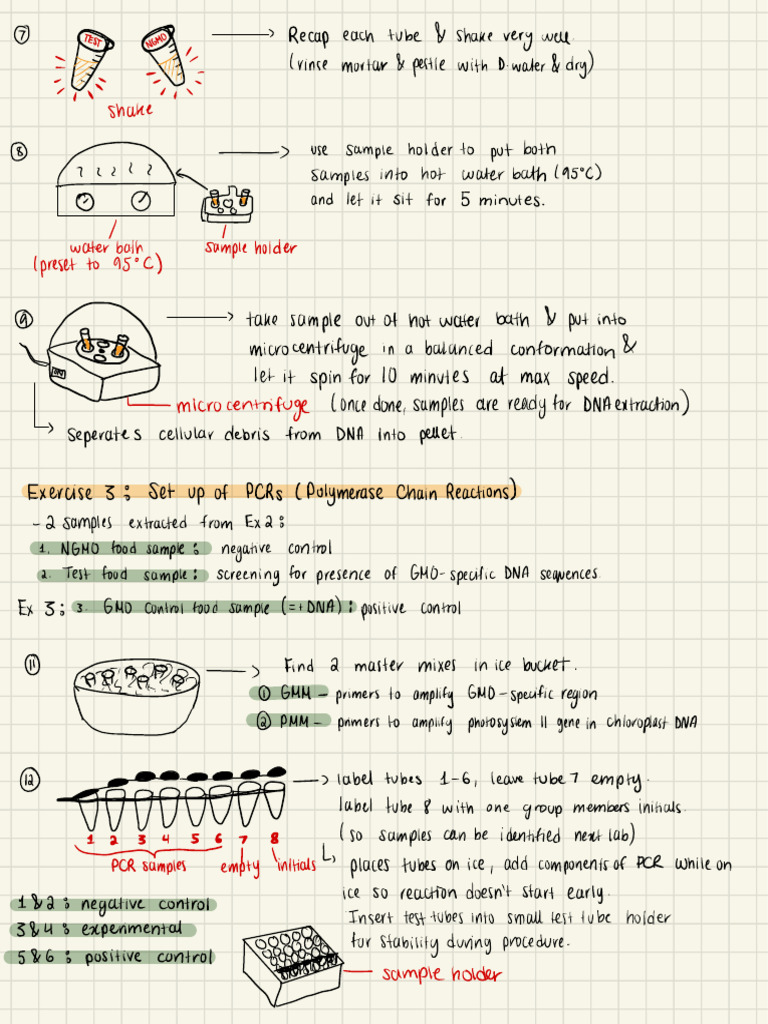 ⑦
TEST
NGMO
Recap each tube & shake very well.
(rinse mortar & pestle with D.water & dry)
shake
⑧
use sample holder to put both
samples into hot water bath (95°C)
and let it sit for 5 minutes.
water bath
(preset to 95°C)
sample holder
⑨
take sample out of hot water bath & put into
microcentrifuge in a balanced conformation &
let it spin for 10 minutes at max speed.
microcentrifuge (once done, samples are ready for DNA extraction)
seperates cellular debris from DNA into pellet.
Exercise 3: Set up of PCRs (Polymerase Chain Reactions)
- 2 samples extracted from Ex 2:
1. NGMO food sample: negative control
2. Test food sample: screening for presence of GMO-specific DNA sequences.
Ex 3: 3. GMO control food sample (=+DNA): positive control
⑪
Find 2 master mixes in ice bucket.
① GMM - primers to amplify GMO-specific region
② PMM - primers to amplify photosystem II gene in chloroplast DNA
⑫
label tubes 1-6, leave tube 7 empty.
label tube 8 with one group members initials.
(so samples can be identified next lab)
1 2 3 4 5 6 7 8
PCR samples empty initials
places tubes on ice, add components of PCR while on
ice so reaction doesn't start early.
Insert test tubes into small test tube holder
for stability during procedure.
1 & 2: negative control
3 & 4: experimental
5 & 6: positive control
sample holder